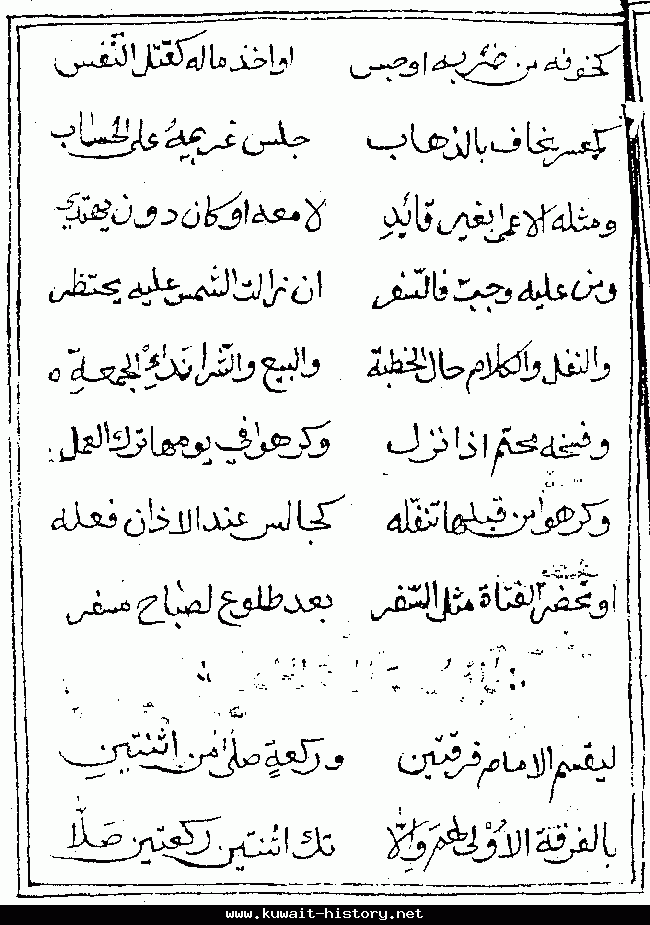 كخوفه من ضربه او حبس او اخذ ماله كقتل النفس
كمعسر يخاف بالذهاب جلس غريمه على الحساب
ومثله الاعمى بغير قائد لا معه او كان دون يهتدي
ومن عليه وجبت فالسفر ان زالت الشمس عليه يحتظر
والنفل والكلام حال الخطبة والبيع والشرا نداء الجمعة
وفسخه محتم اذا نزل وكرهوا في يومها ترك العمل
وكرهوا من قبلها تنفله كجالس عند الاذان فعله
او تحضر الفتاة مثل السفر بعد طلوع لصباح مسفر
ليقسم الامام فرقتين وركعة صلى من اثنتين
بالفرقة الاولى لهم والا تك اثنتين ركعتين صلا
www.kuwait-history.net